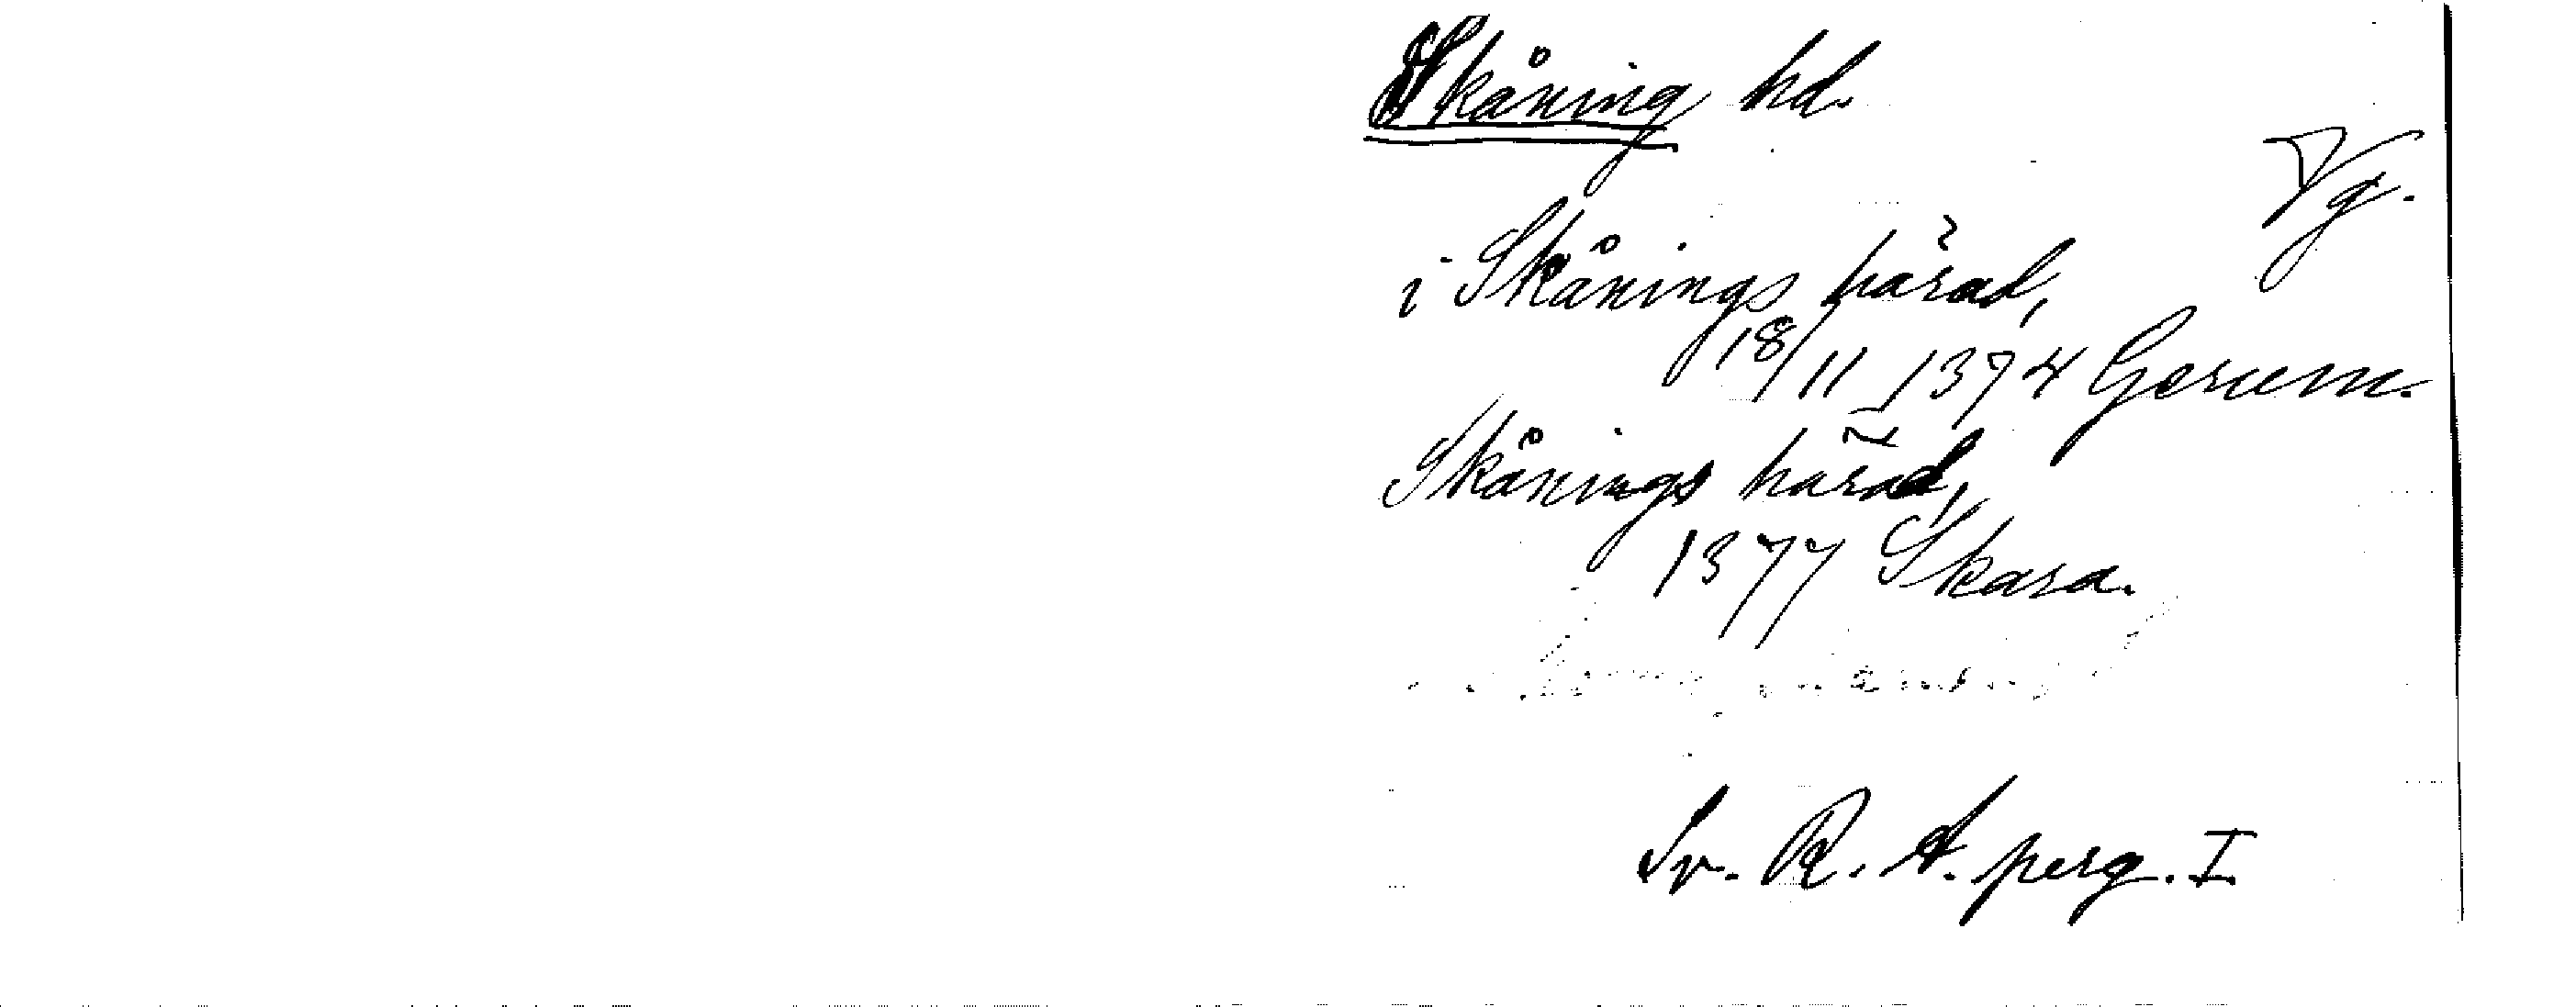 Skåning hd.
Vg.
i Skånings härad,
18/11 1374 Gerum.
Skånings härad,
1377 Skara.
Sv. R. A. perg. I